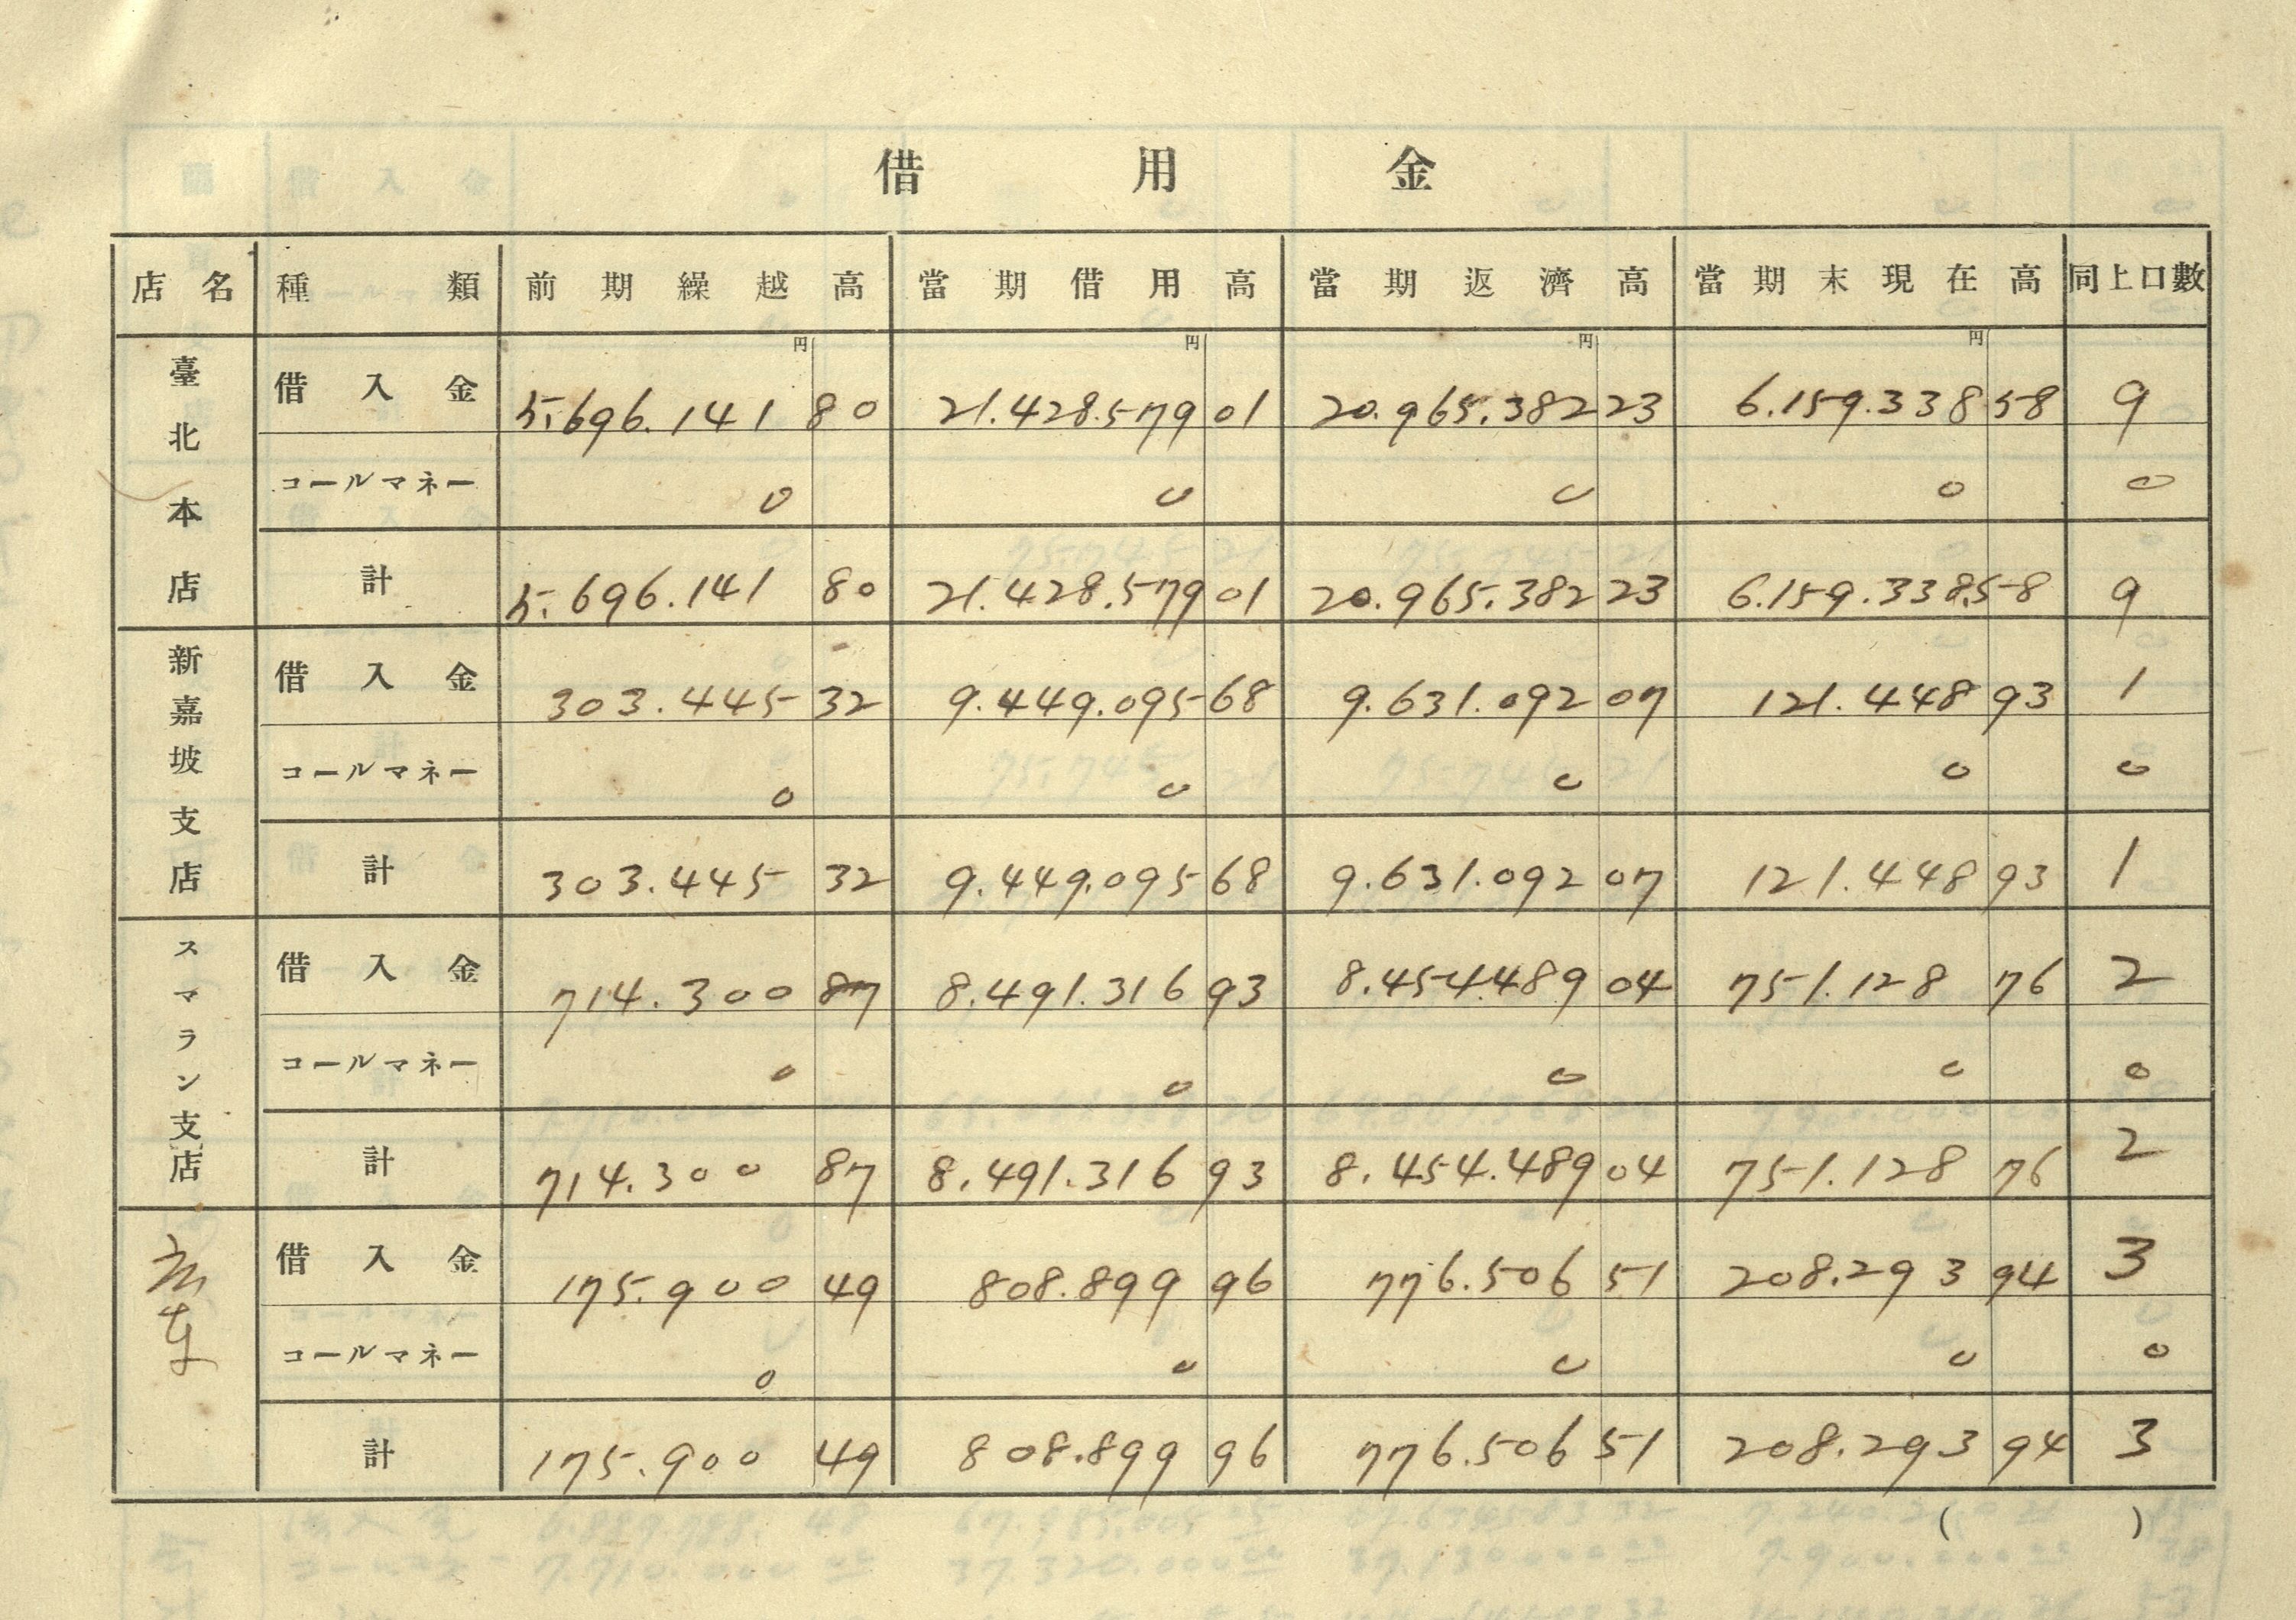 借用金
店名 種類 前期繰越高 當期借用高 當期返濟高 當期末現在高 同上口數
円 円 円 円
臺北本店 借入金 5.696.141 80 21.428.579 01 20.965.382 23 6.159.338 58 9
コールマネー 0 0 0 0 0
計 5.696.141 80 21.428.579 01 20.965.382 23 6.159.338 58 9
新嘉坡支店 借入金 303.445 32 9.449.095 68 9.631.092 07 121.448 93 1
コールマネー 0 0 0 0 0
計 303.445 32 9.449.095 68 9.631.092 07 121.448 93 1
スマラン支店 借入金 714.300 87 8.491.316 93 8.454.489 04 751.128 76 2
コールマネー 0 0 0 0 0
計 714.300 87 8.491.316 93 8.454.489 04 751.128 76 2
広東 借入金 175.900 49 808.899 96 776.506 51 208.293 94 3
コールマネー 0 0 0 0 0
計 175.900 49 808.899 96 776.506 51 208.293 94 3
( )